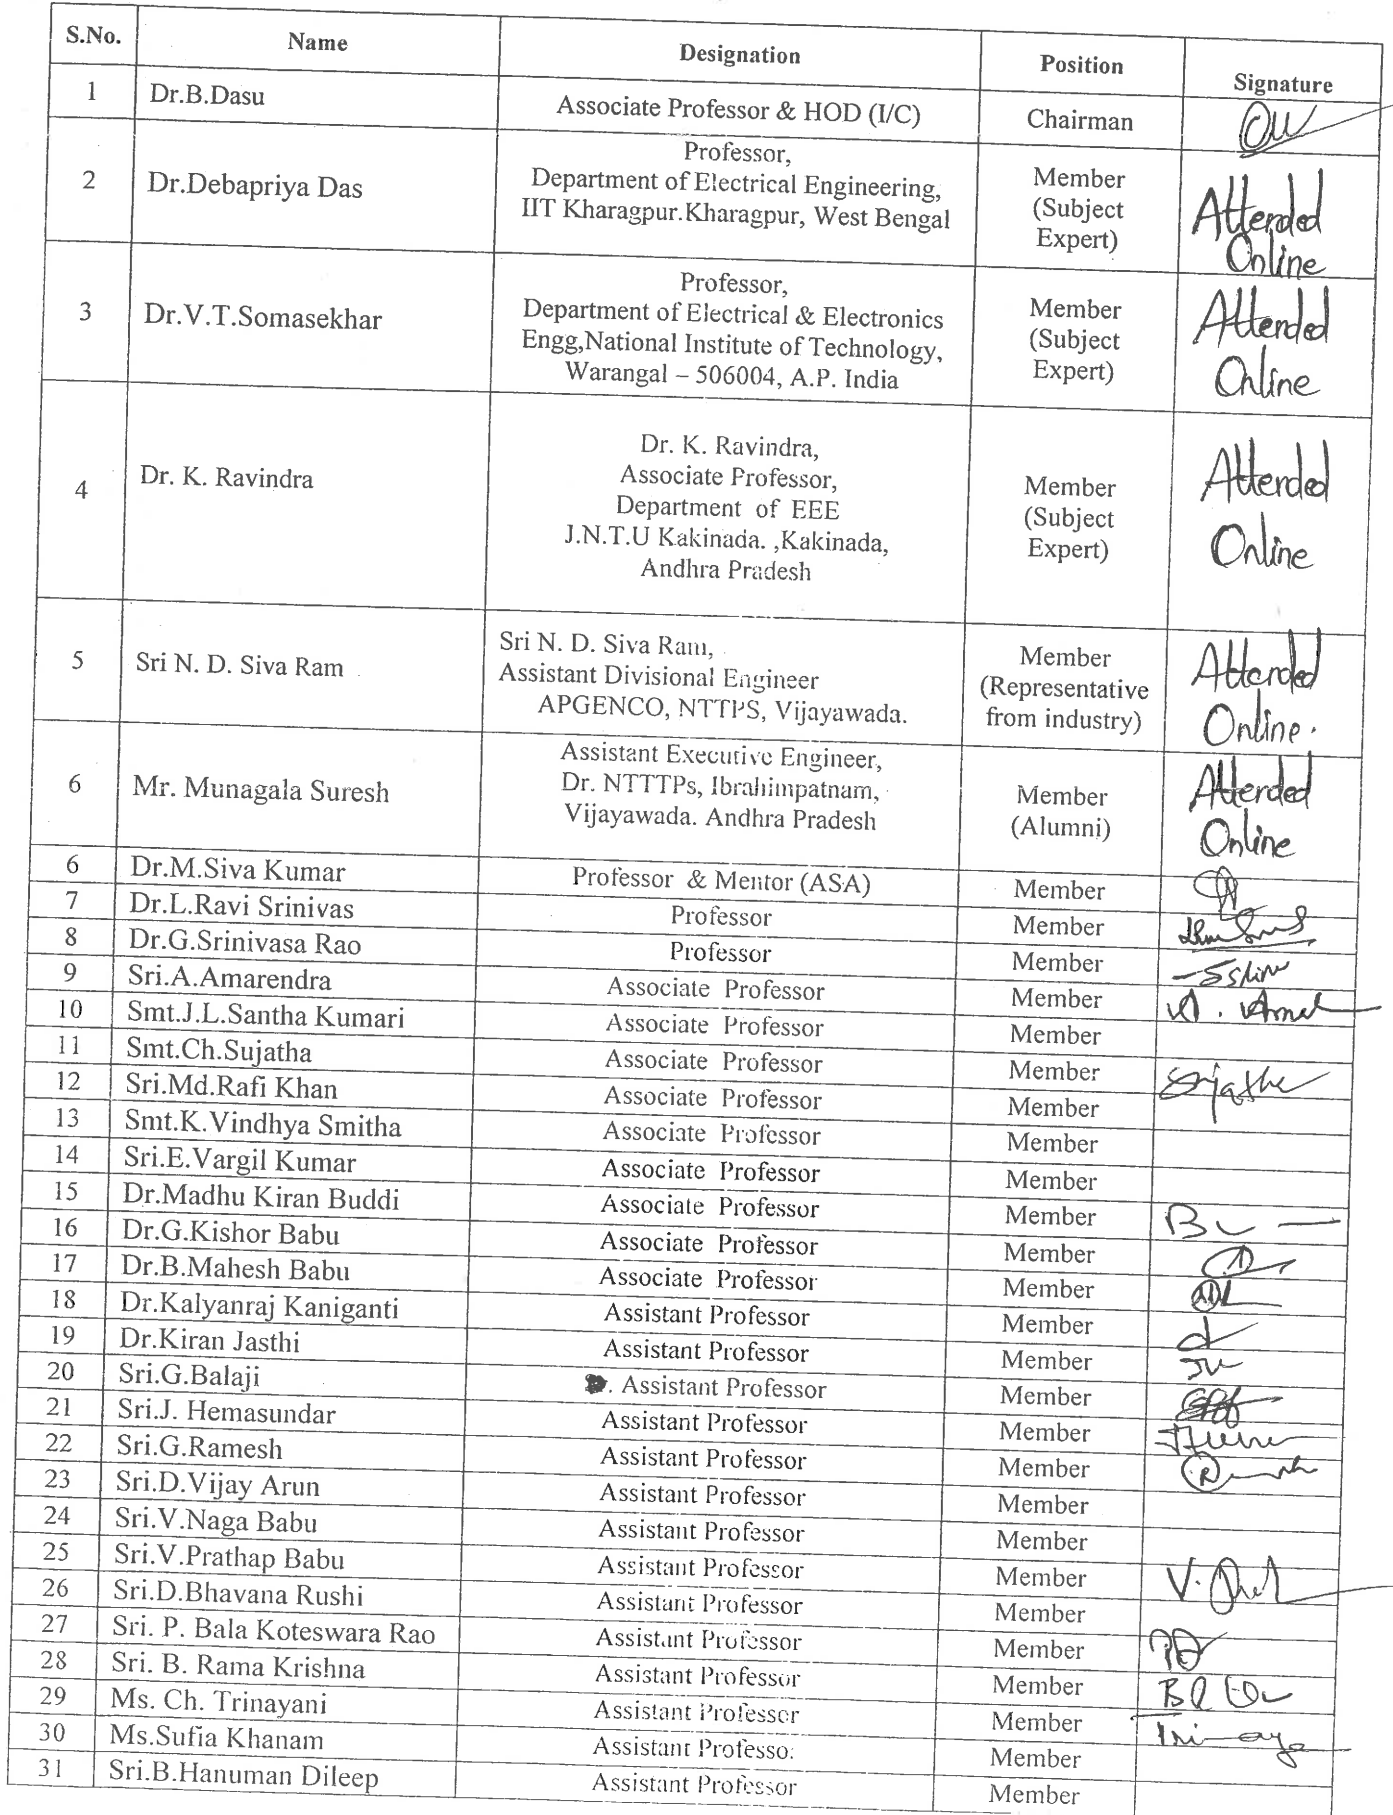 S.No. Name Designation Position Signature
1 Dr.B.Dasu Associate Professor & HOD (I/C) Chairman
2 Dr.Debapriya Das
Professor,
Department of Electrical Engineering,
IIT Kharagpur.Kharagpur, West Bengal
Member
(Subject
Expert)
Attended
Online
3 Dr.V.T.Somasekhar
Professor,
Department of Electrical & Electronics
Engg,National Institute of Technology,
Warangal – 506004, A.P. India
Member
(Subject
Expert)
Attended
Online
4 Dr. K. Ravindra
Dr. K. Ravindra,
Associate Professor,
Department of EEE
J.N.T.U Kakinada. ,Kakinada,
Andhra Pradesh
Member
(Subject
Expert)
Attended
Online
5 Sri N. D. Siva Ram
Sri N. D. Siva Ram,
Assistant Divisional Engineer
APGENCO, NTTPS, Vijayawada.
Member
(Representative
from industry)
Attended
Online.
6 Mr. Munagala Suresh
Assistant Executive Engineer,
Dr. NTTTPs, Ibrahimpatnam,
Vijayawada. Andhra Pradesh
Member
(Alumni)
Attended
Online
6 Dr.M.Siva Kumar Professor & Mentor (ASA) Member
7 Dr.L.Ravi Srinivas Professor Member
8 Dr.G.Srinivasa Rao Professor Member
9 Sri.A.Amarendra Associate Professor Member
10 Smt.J.L.Santha Kumari Associate Professor Member
11 Smt.Ch.Sujatha Associate Professor Member
12 Sri.Md.Rafi Khan Associate Professor Member
13 Smt.K.Vindhya Smitha Associate Professor Member
14 Sri.E.Vargil Kumar Associate Professor Member
15 Dr.Madhu Kiran Buddi Associate Professor Member
16 Dr.G.Kishor Babu Associate Professor Member
17 Dr.B.Mahesh Babu Associate Professor Member
18 Dr.Kalyanraj Kaniganti Assistant Professor Member
19 Dr.Kiran Jasthi Assistant Professor Member
20 Sri.G.Balaji . Assistant Professor Member
21 Sri.J. Hemasundar Assistant Professor Member
22 Sri.G.Ramesh Assistant Professor Member
23 Sri.D.Vijay Arun Assistant Professor Member
24 Sri.V.Naga Babu Assistant Professor Member
25 Sri.V.Prathap Babu Assistant Professor Member
26 Sri.D.Bhavana Rushi Assistant Professor Member
27 Sri. P. Bala Koteswara Rao Assistant Professor Member
28 Sri. B. Rama Krishna Assistant Professor Member
29 Ms. Ch. Trinayani Assistant Professor Member
30 Ms.Sufia Khanam Assistant Professor Member
31 Sri.B.Hanuman Dileep Assistant Professor Member